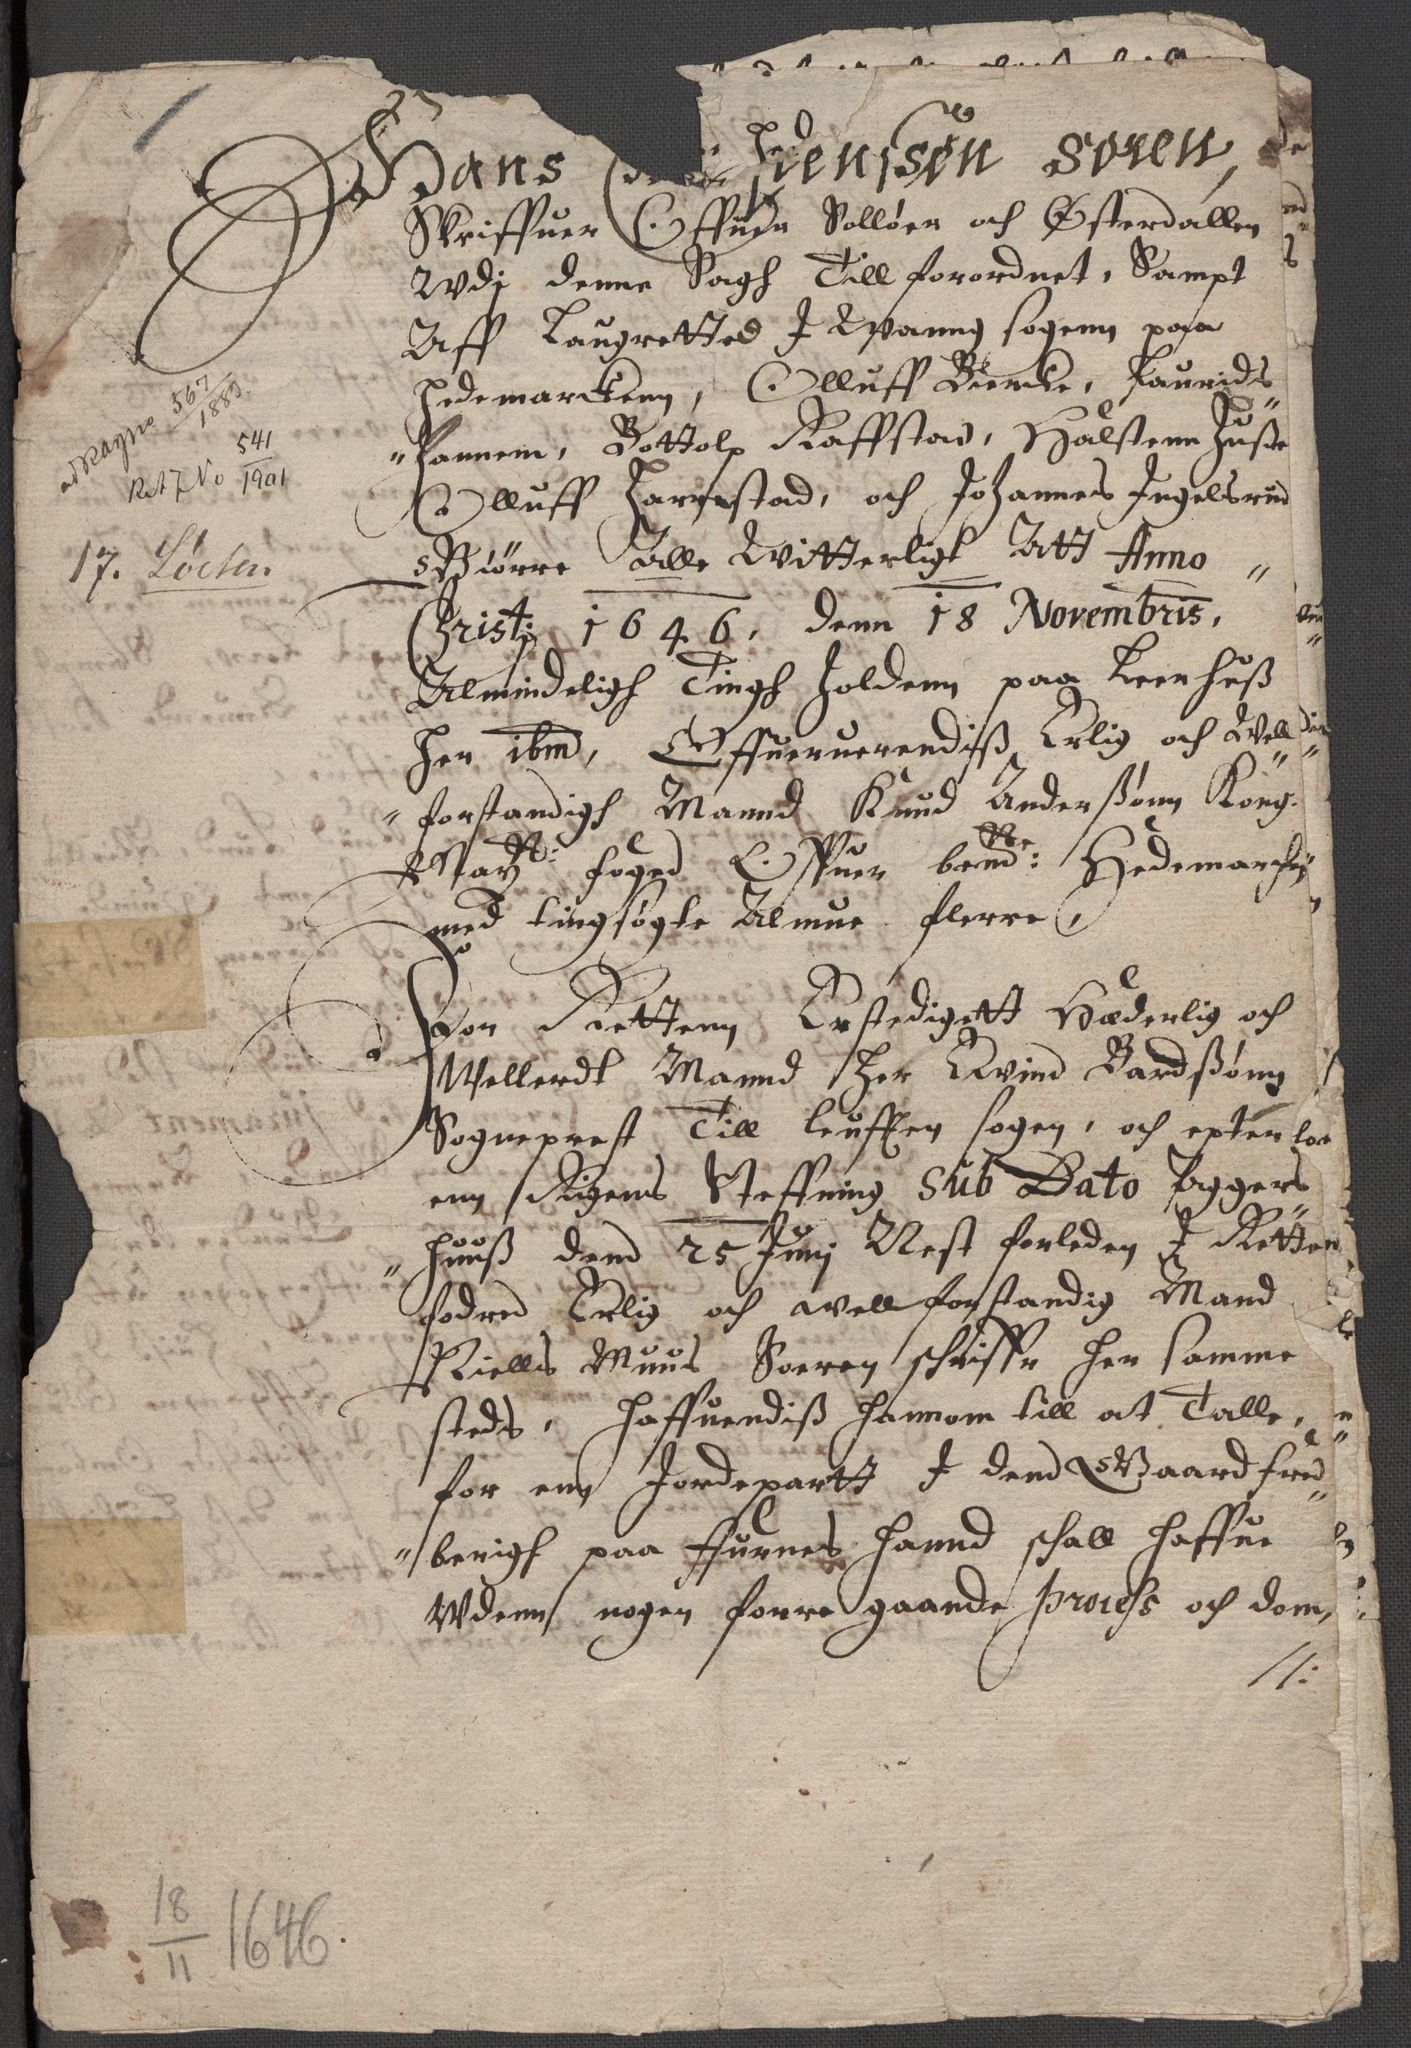 Hans Henisøn soren,
Skriffuer Offuer Solløer och Østerdallen
Wdj denne Sagh Till forordnet, Sampt
Aff Laugretted J Wanng sogenn paa
Hedemarckenn, Olluff Biercke, Laurids
"Hannem, Bottolp Raffstad, Halstenn Huße
Olluff Harrestad, och Johannes Jngelsrud
Giörre Alle Witterligt Att Anno "
Christi 1646, denn 18 Novembris,
Almindeligh Tingh holdenn paa Leenhuß
her ibm, Offueruerendiß Erlig och Well"
"forstandigh Mannd Knud Anderßønn Kong.
May tt: foged Offuer bemte: Hedemarchen
med tingsøgte Almue flerre,
For Rettenn Erstedigett Hæderlig och
Wellerdt Mannd Her Evind Bardßønn
Sogneprest Till Leuffen sogen, och epter
enn Rigens Steffning sub Dato Aggers"
"huuß dend 25 Junj Nest forleden J Retten
fodred Erlig och vellforstandig Mand
Niells Muus Soeren schriffr her samme
steds, haffuendiß hannom till at Talle,
for enn Jordepartt J dend Gaard fred"
"berigh paa ffurnes hannd schall haffue
Wdenn nogen forregaande process och dom,
//:
ad Ragna 567/1889
Rat J No 541/1901
17. Löiten
18/11 1646.